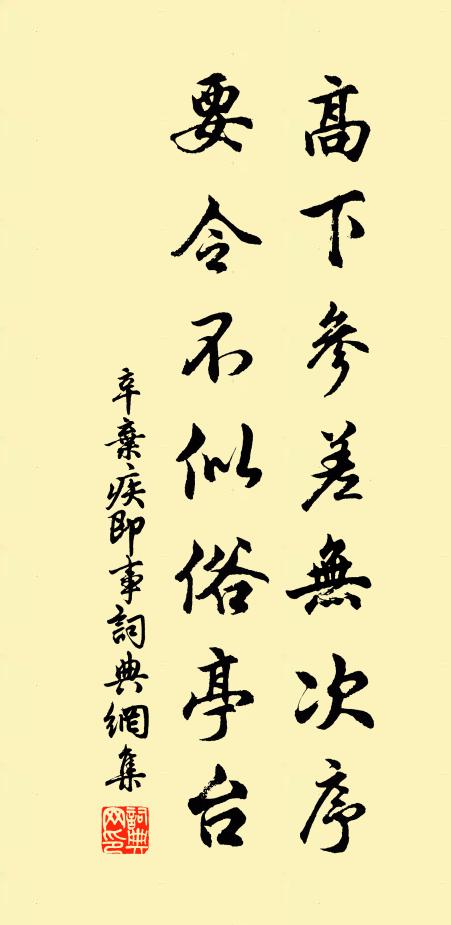 高下參差無次序
要令不似俗亭台
辛棄疾即事詞典網集
詞典網印